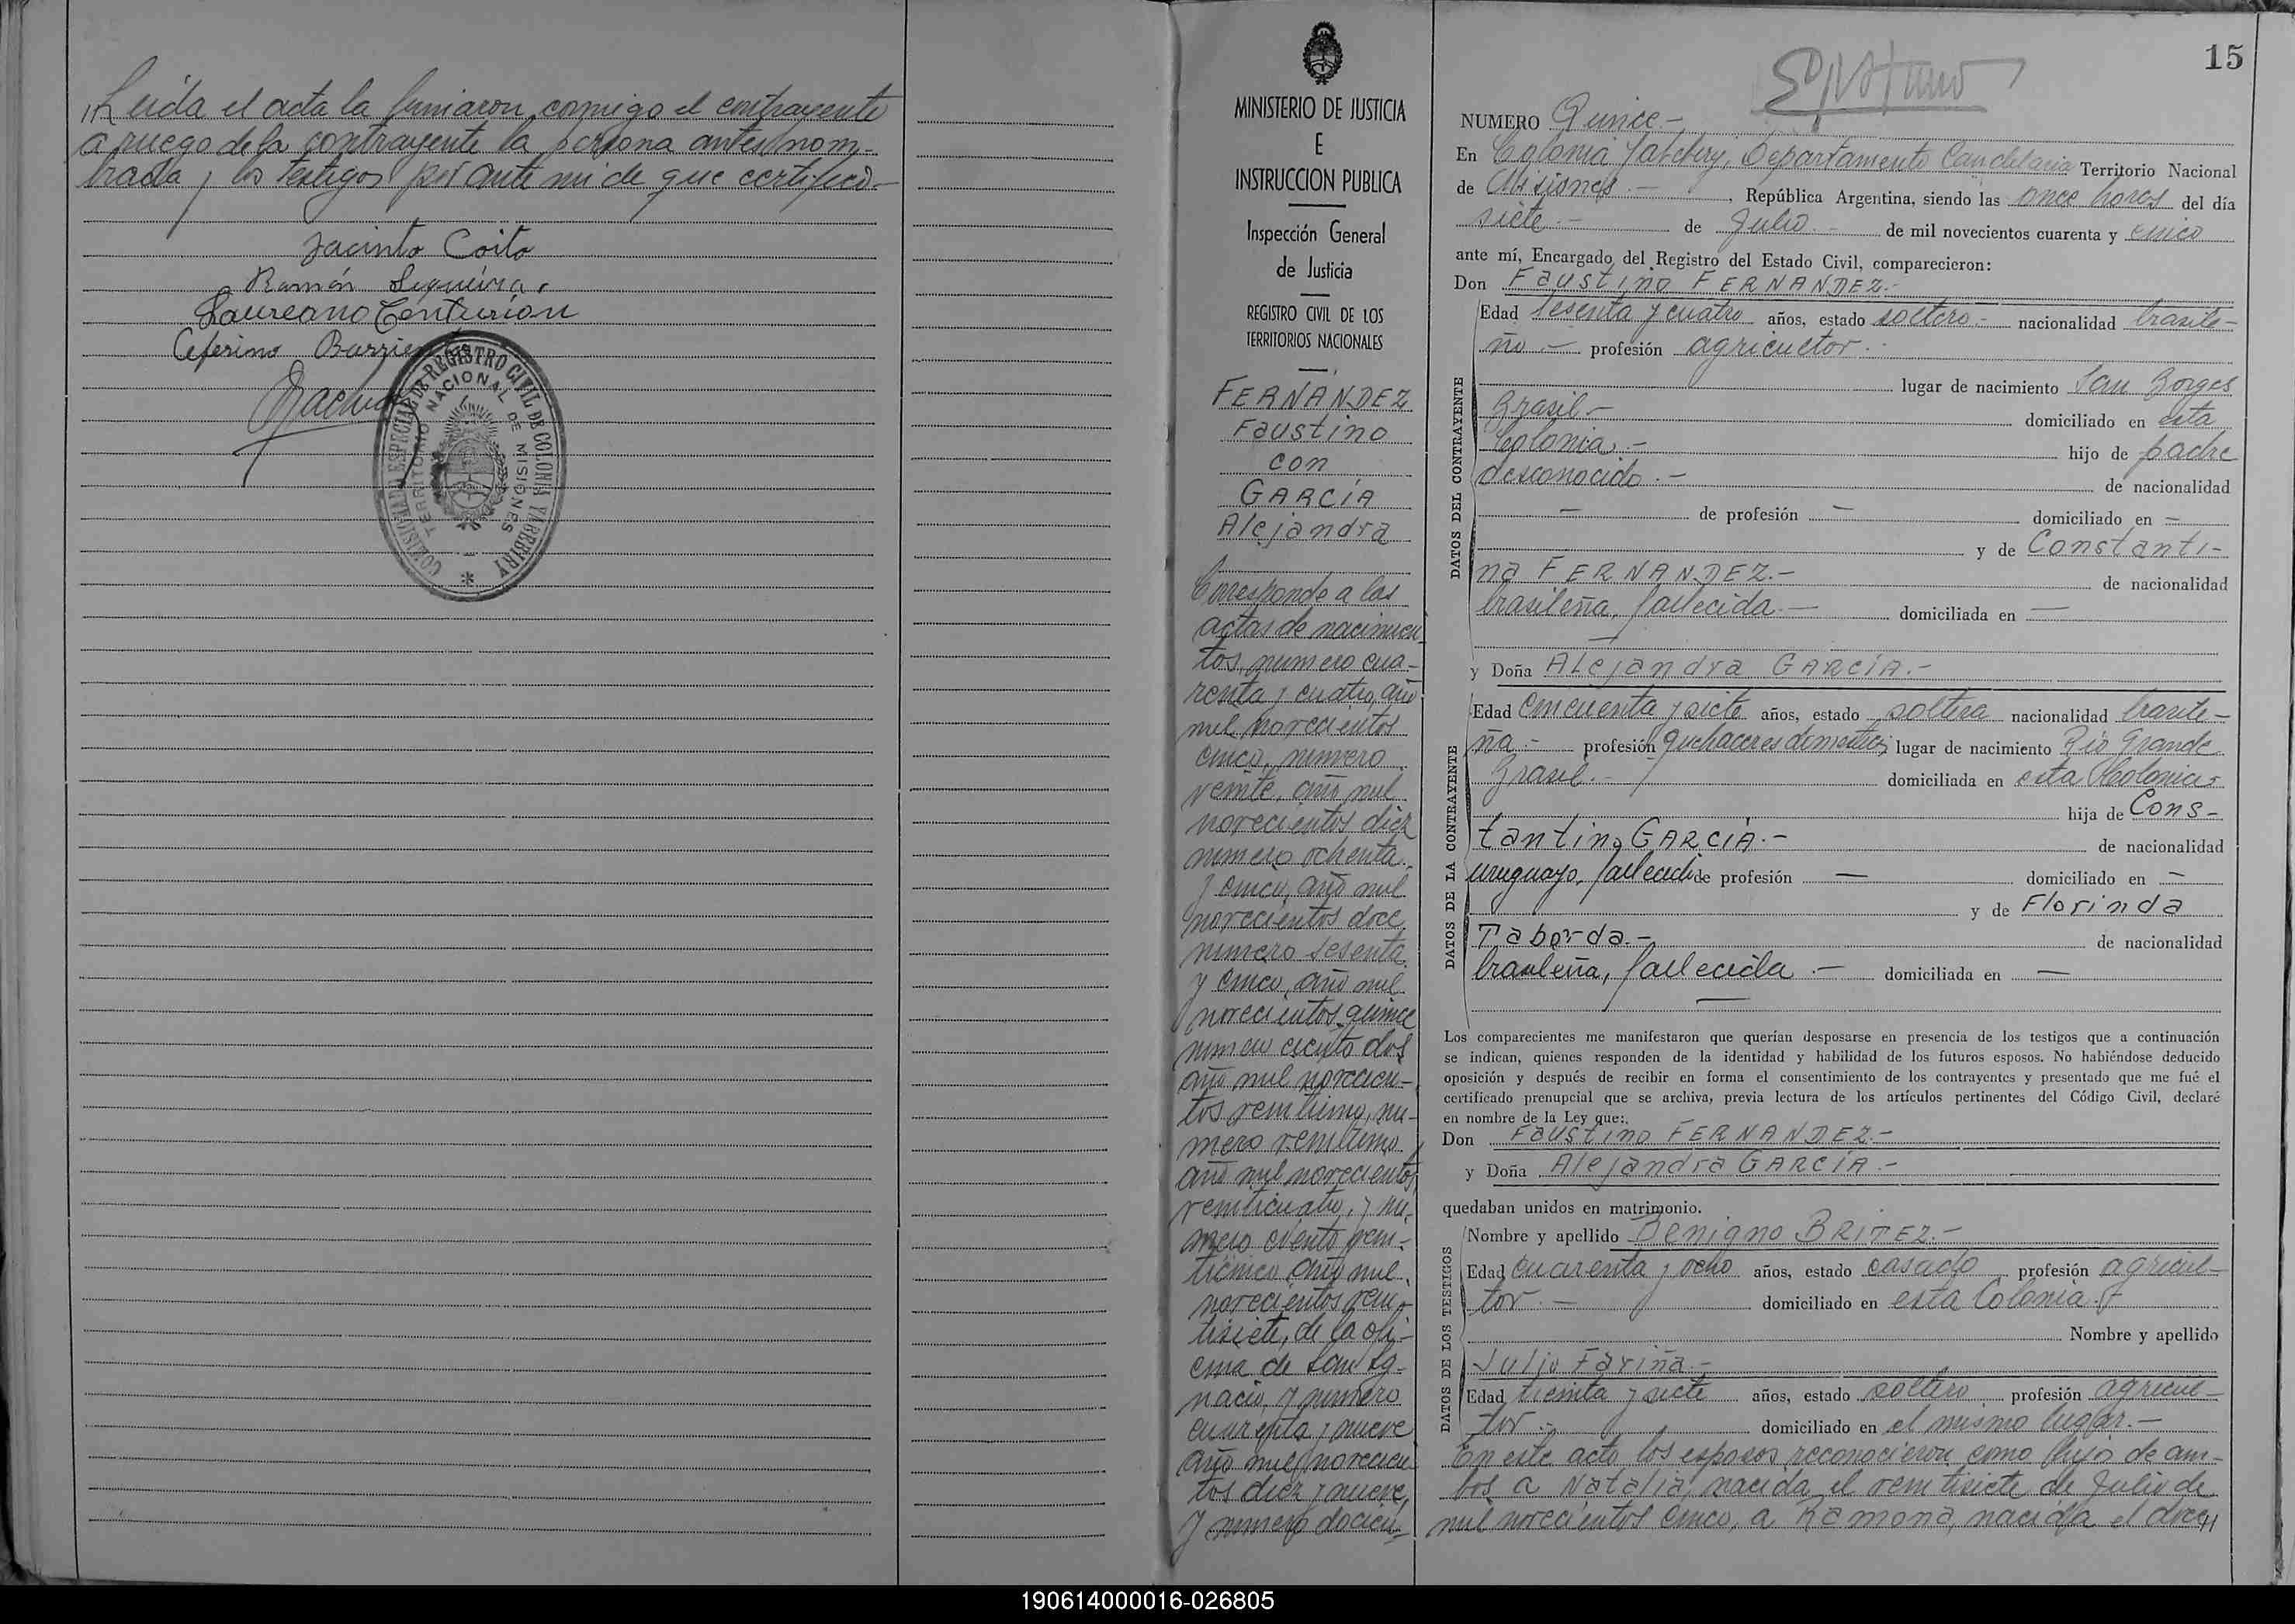 Leida el acta la firmaron conmigo el contrayente
a ruego de la contrayente la persona antes nom-
brada y los testigos por ante mi de que certifico.-
Jacinto Coito
Ramón Sequeira
Laureano Centurion
Ceferino Barrie
COMISARIA ESPECIAL DE REGISTRO CIVIL DE COLONIA YABEBIRY
TERRITORIO NACIONAL DE MISIONES
MINISTERIO DE JUSTICIA
E
INSTRUCCION PUBLICA
Inspección General
de Justicia
REGISTRO CIVIL DE LOS
TERRITORIOS NACIONALES
FERNANDEZ
Faustino
con
GARCÍA
Alejandra
Corresponde a las
actas de nacimien-
tos, numero cua-
renta y cuatro, año
mil novecientos
cinco, numero
veinte, año mil
novecientos diez
numero ochenta
y cinco, año mil
novecientos doce
numero sesenta
y cinco, año mil
novecientos quince
numero ciento dos
año mil novecien-
tos veintiuno, nu-
mero veintiuno
año mil novecientos
veinticuatro, y nu-
mero ciento vein-
ticinco año mil
novecientos vein-
tisiete, de la ofi-
cina de San Ig-
nacio, y numero
cuarenta y nueve
año mil novecien-
tos diez y nueve,
y numero docien-
15
NUMERO Quince-
En Colonia Yabebiry, Departamento Candelaria Territorio Nacional
de Misiones.- , República Argentina, siendo las once horas del día
siete.- de Julio.- de mil novecientos cuarenta y cinco
ante mí, Encargado del Registro del Estado Civil, comparecieron:
Don Faustino FERNANDEZ.-
DATOS DEL CONTRAYENTE
Edad sesenta y cuatro años, estado soltero.- nacionalidad brasile-
ño.- profesión agricultor.-
lugar de nacimiento San Borges
Brasil- domiciliado en esta
Colonia.- hijo de padre
desconocido.- de nacionalidad
— de profesión — domiciliado en —
y de Constanti-
na FERNANDEZ.- de nacionalidad
brasileña, fallecida.- domiciliada en —
y Doña Alejandra GARCÍA.-
DATOS DE LA CONTRAYENTE
Edad cincuenta y siete años, estado soltera nacionalidad brasile-
ña.- profesión quehaceres domesticos lugar de nacimiento Rio Grande
Brasil.- domiciliada en esta Colonia-
hija de Cons-
tantino GARCÍA.- de nacionalidad
uruguayo, fallecido de profesión — domiciliado en —
y de Florinda
Taborda.- de nacionalidad
brasileña, fallecida.- domiciliada en —
Los comparecientes me manifestaron que querían desposarse en presencia de los testigos que a continuación
se indican, quienes responden de la identidad y habilidad de los futuros esposos. No habiéndose deducido
oposición y después de recibir en forma el consentimiento de los contrayentes y presentado que me fué el
certificado prenupcial que se archiva, previa lectura de los artículos pertinentes del Código Civil, declaré
en nombre de la Ley que:
Don Faustino FERNANDEZ.-
y Doña Alejandra GARCÍA.-
quedaban unidos en matrimonio.
DATOS DE LOS TESTIGOS
Nombre y apellido Benigno BRITEZ.-
Edad cuarenta y ocho años, estado casado profesión agricul-
tor.- domiciliado en esta Colonia.
Nombre y apellido
Julio Fariña.-
Edad treinta y siete años, estado soltero profesión agricul-
tor.- domiciliado en el mismo lugar.-
En este acto los esposos reconocieron como hijo de am-
bos a Natalia, nacida el veintisiete de Julio de
mil novecientos cinco, a Ramona, nacida el doce
190614000016-026805